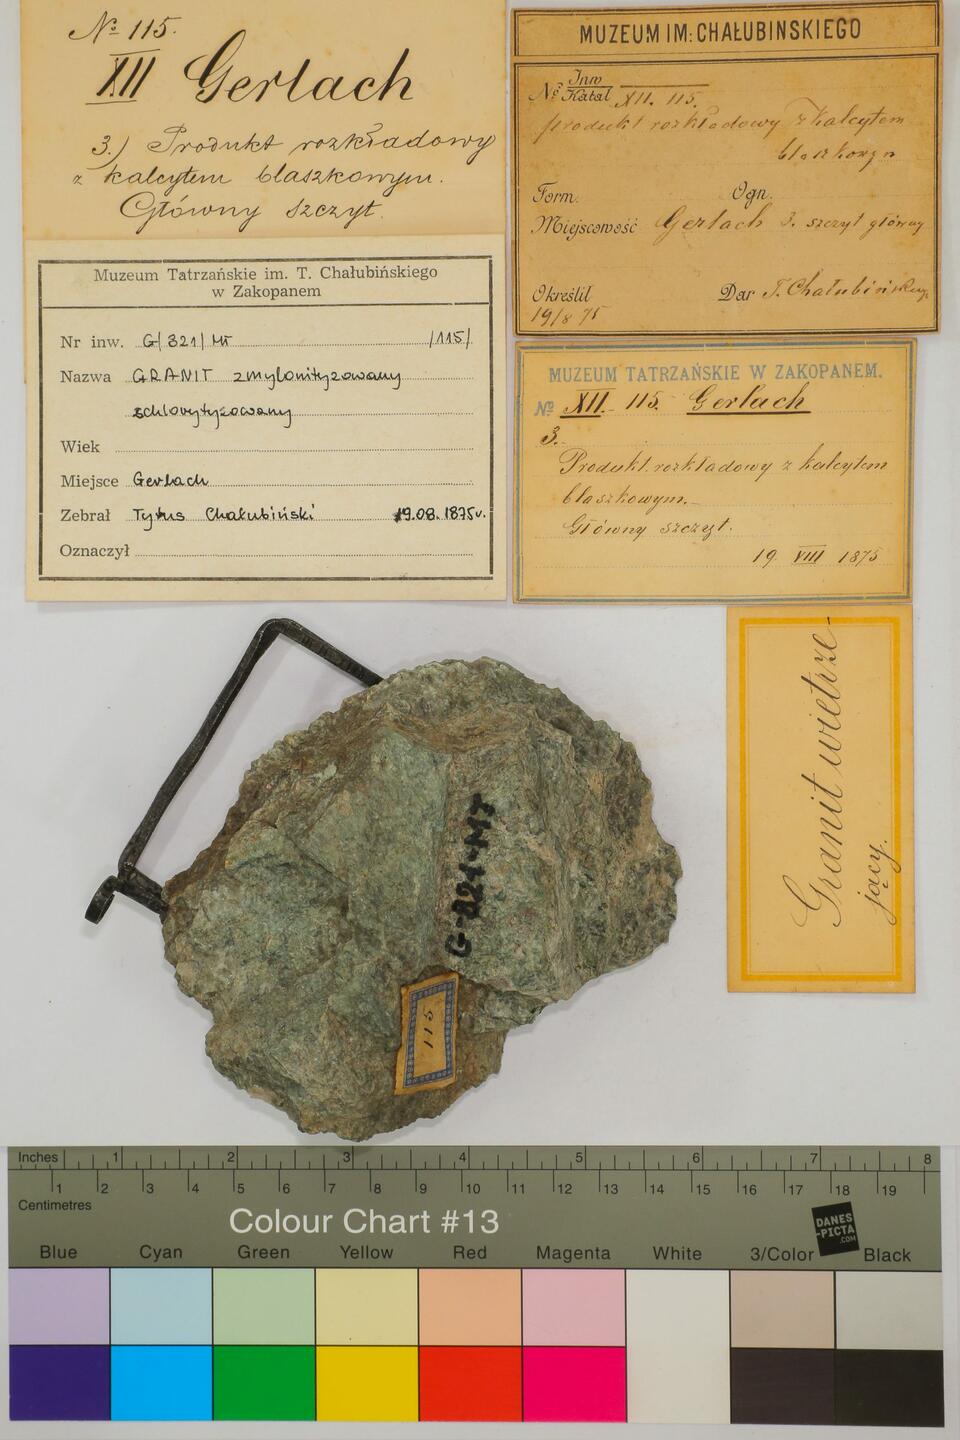 № 115.
XII Gerlach
3.) Produkt rozkładowy
z kalcytem blaszkowym.
Główny szczyt.
MUZEUM IM: CHAŁUBINSKIEGO
№ Inw
Katal XII. 115.
produkt rozkładowy z kalcytem
blaszkowym
Form. Ogn.
Miejscowość Gerlach 3. szczyt główny
Określił Dar T. Chałubińskiego
19/8 75
Muzeum Tatrzańskie im. T. Chałubińskiego
w Zakopanem
Nr inw. G/321/MT /115/
Nazwa GRANIT zmylonityzowany
schlorytyzowany
Wiek
Miejsce Gerlach
Zebrał Tytus Chałubiński 19.08.1875r.
Oznaczył
MUZEUM TATRZAŃSKIE W ZAKOPANEM.
№ XII. 115. Gerlach
3.
Produkt rozkładowy z kalcytem
blaszkowym.
Główny szczyt.
19 VIII 1875
Granit wietrze-
jący.
G-321-MT
115
Inches 1 2 3 4 5 6 7 8
1 2 3 4 5 6 7 8 9 10 11 12 13 14 15 16 17 18 19
Centimetres
Colour Chart #13
DANES
-PICTA
.COM
Blue Cyan Green Yellow Red Magenta White 3/Color Black